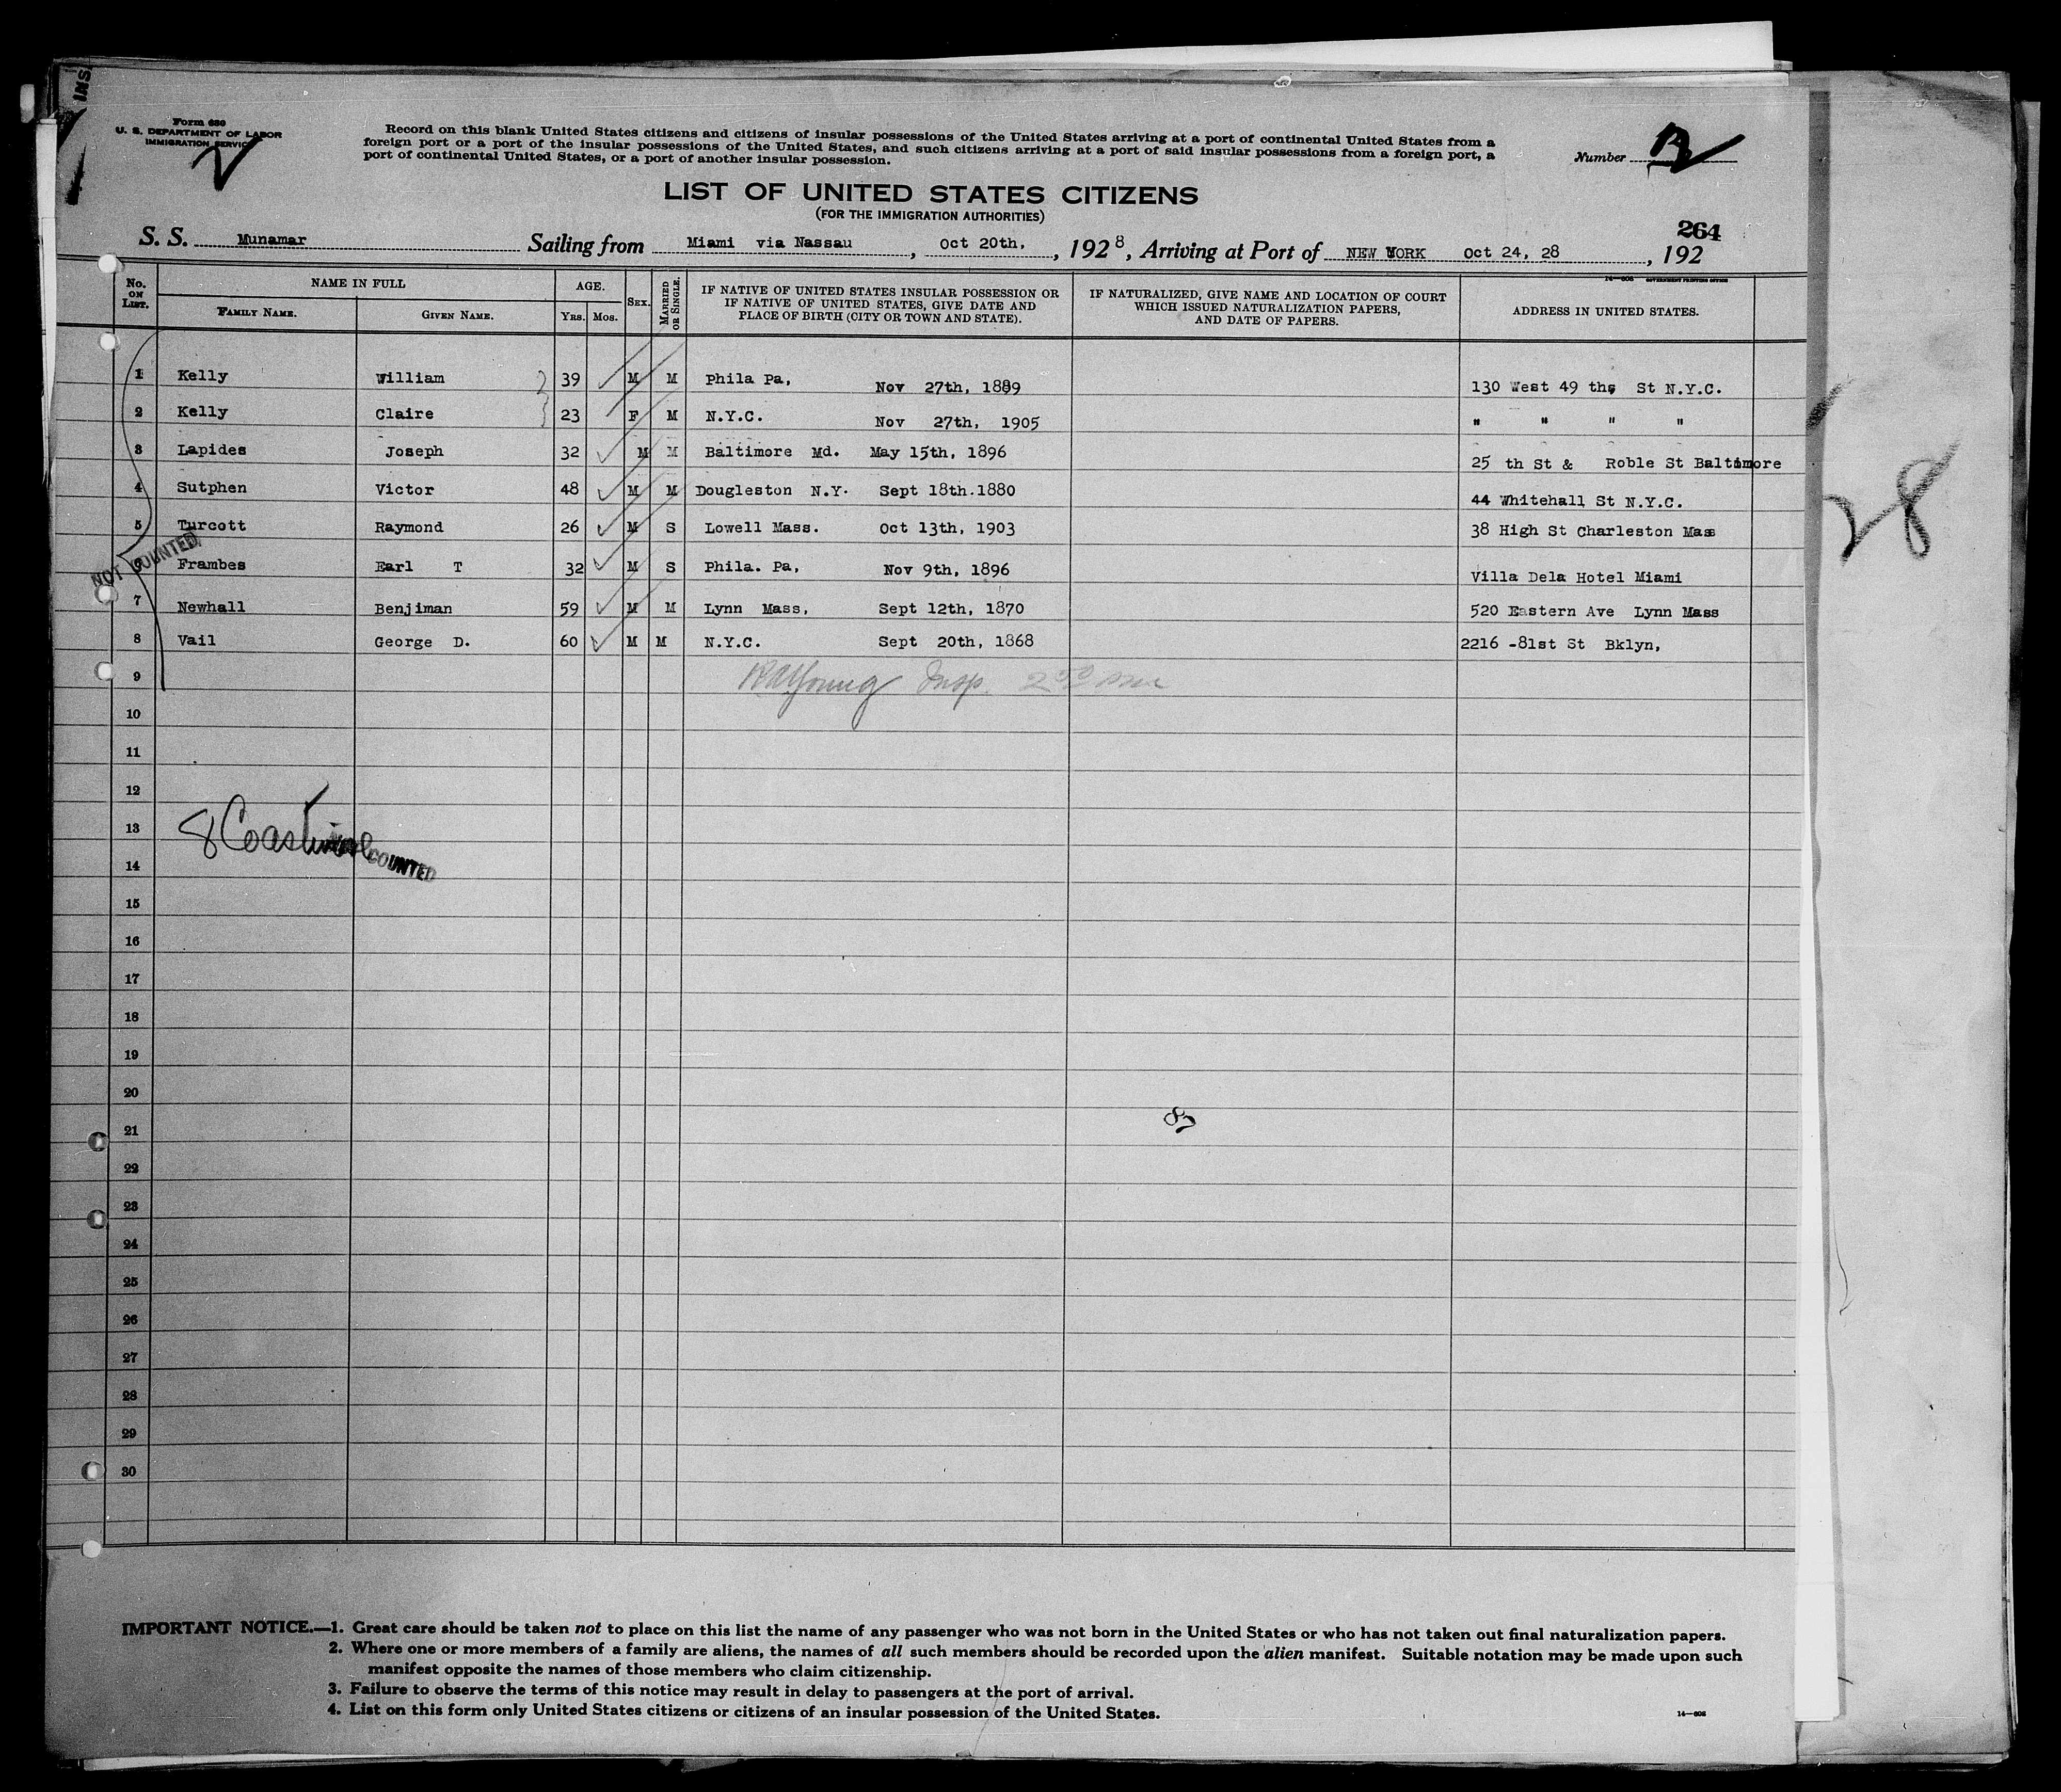 Form 630
U. S. DEPARTMENT OF LABOR
IMMIGRATION SERVICE
Record on this blank United States citizens and citizens of insular possessions of the United States arriving at a port of continental United States from a
foreign port or a port of the insular possessions of the United States, and such citizens arriving at a port of said insular possessions from a foreign port, a
port of continental United States, or a port of another insular possession.
Number
LIST OF UNITED STATES CITIZENS
(FOR THE IMMIGRATION AUTHORITIES)
264
S. S. Munamar Sailing from Miami via Nassau, Oct 20th, , 1928, Arriving at Port of NEW YORK Oct 24, 28, 192
14—608 GOVERNMENT PRINTING OFFICE
No. ON LIST. NAME IN FULL AGE. SEX. MARRIED OR SINGLE. IF NATIVE OF UNITED STATES INSULAR POSSESSION OR IF NATIVE OF UNITED STATES, GIVE DATE AND PLACE OF BIRTH (CITY OR TOWN AND STATE). IF NATURALIZED, GIVE NAME AND LOCATION OF COURT WHICH ISSUED NATURALIZATION PAPERS, AND DATE OF PAPERS. ADDRESS IN UNITED STATES.
FAMILY NAME. GIVEN NAME. YRS. MOS.
1 Kelly William 39 M M Phila Pa, Nov 27th, 1889 130 West 49 ths St N.Y.C.
2 Kelly Claire 23 F M N.Y.C. Nov 27th, 1905 " " " "
3 Lapides Joseph 32 M M Baltimore Md. May 15th, 1896 25 th St & Roble St Baltimore
4 Sutphen Victor 48 M M Dougleston N.Y. Sept 18th.1880 44 Whitehall St N.Y.C.
5 Turcott Raymond 26 M S Lowell Mass. Oct 13th, 1903 38 High St Charleston Mass
NOT COUNTED
6 Frambes Earl T 32 M S Phila. Pa, Nov 9th, 1896 Villa Dela Hotel Miami
7 Newhall Benjiman 59 M M Lynn Mass, Sept 12th, 1870 520 Eastern Ave Lynn Mass
8 Vail George D. 60 M M N.Y.C. Sept 20th, 1868 2216 -81st St Bklyn,
9 Young Insp.
10
11
12
13 8 Coastwise
NOT COUNTED
14
15
16
17
18
19
20
21
22
23
24
25
26
27
28
29
30
28
IMPORTANT NOTICE.—1. Great care should be taken not to place on this list the name of any passenger who was not born in the United States or who has not taken out final naturalization papers.
2. Where one or more members of a family are aliens, the names of all such members should be recorded upon the alien manifest. Suitable notation may be made upon such
manifest opposite the names of those members who claim citizenship.
3. Failure to observe the terms of this notice may result in delay to passengers at the port of arrival.
4. List on this form only United States citizens or citizens of an insular possession of the United States.
14—608